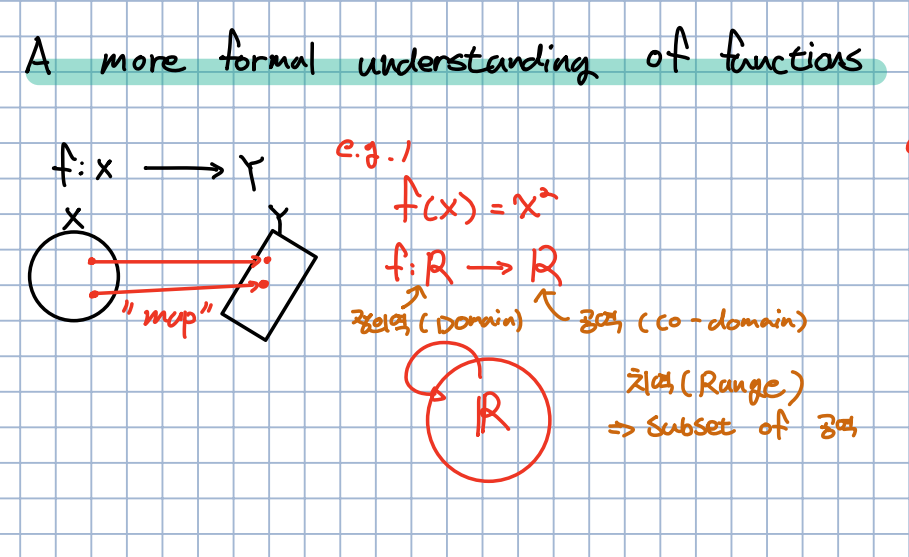 A more formal understanding of functions
f: X → Y
X
Y
"map"
e.g. 1
f(x) = x²
f: ℝ → ℝ
정의역 (Domain)
공역 (co-domain)
ℝ
치역 (Range)
⇒ subset of 공역